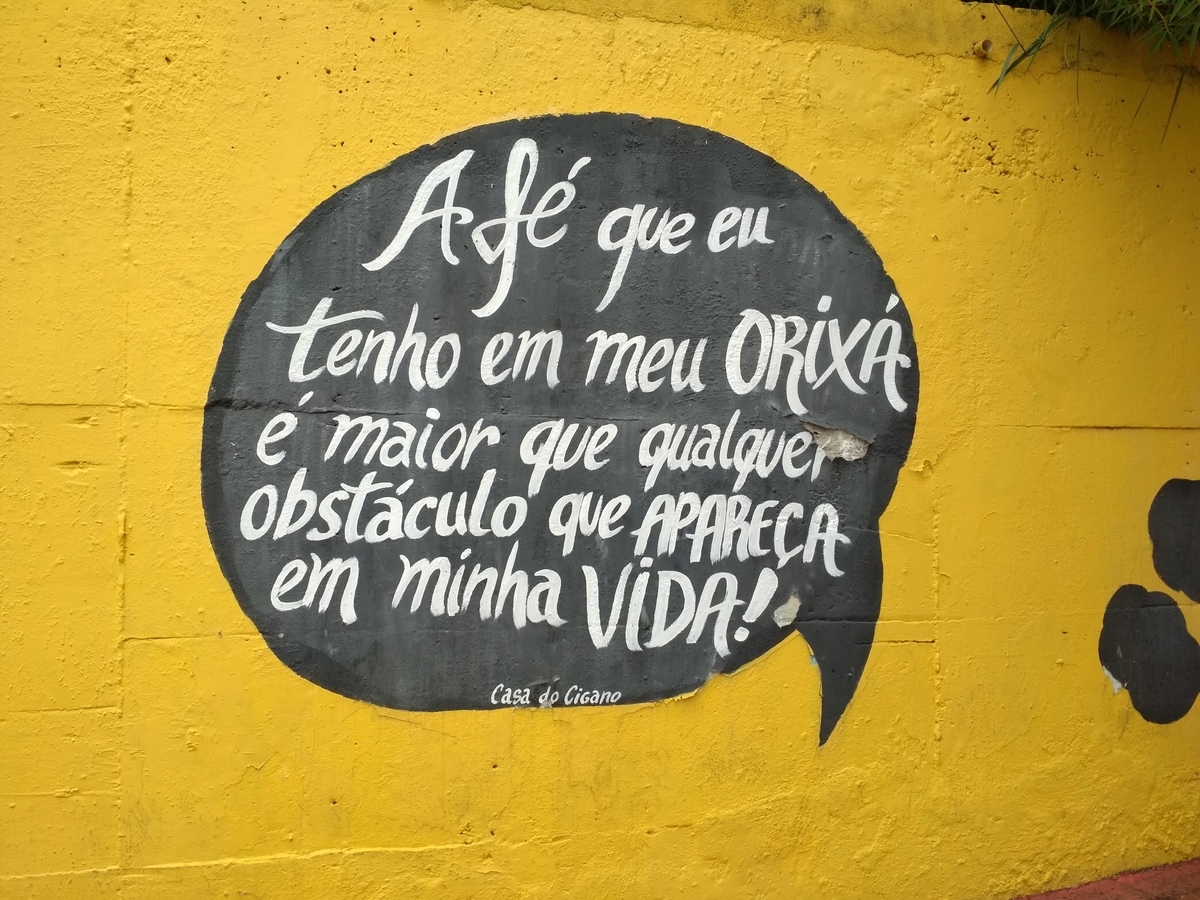 A fé que eu
tenho em meu ORIXÁ
é maior que qualquer
obstáculo que APAREÇA
em minha ViDA!
Casa do Cigano